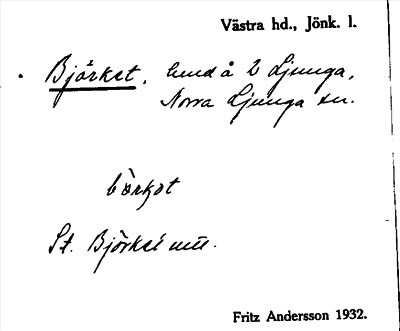 Västra hd., Jönk. l.
Björket, lund å 2 Ljunga,
Norra Ljunga sn.
bö̀rkət
St. Björket
Fritz Andersson 1932.